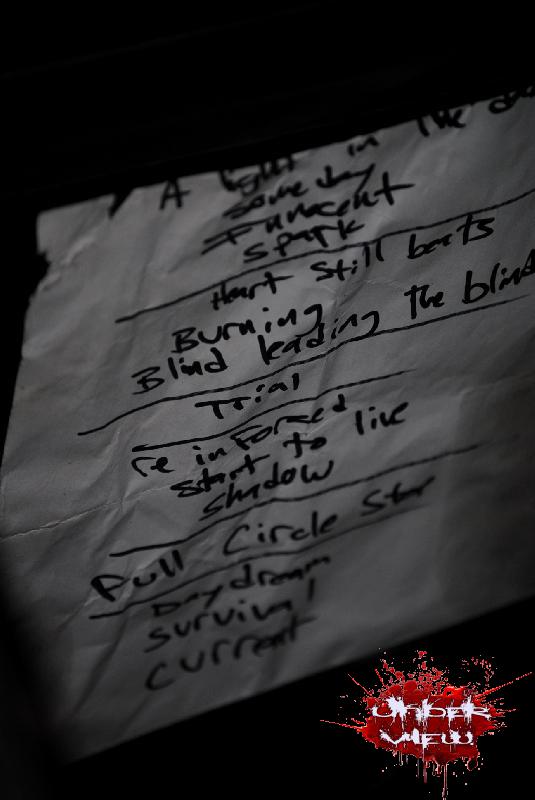 A light in The
Someday
Innocent
Spark
Heart Still beats
Burning
Blind leading The blind
Trial
re inforced
start to live
shadow
Full Circle Star
Daydream
survival
current
UNDER
VIEW